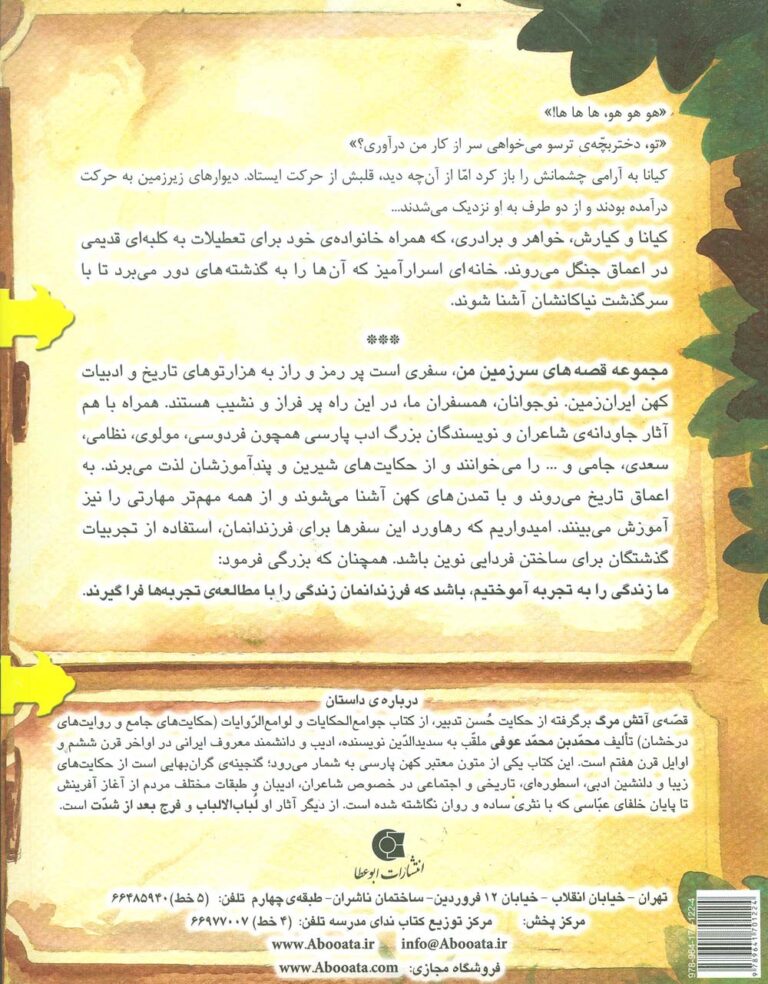 «هو هو هو، ها ها ها!»
«تو، دختربچّه‌ی ترسو می‌خواهی سر از کار من درآوری؟»
کیانا به آرامی چشمانش را باز کرد امّا از آن‌چه دید، قلبش از حرکت ایستاد. دیوارهای زیرزمین به حرکت
درآمده بودند و از دو طرف به او نزدیک می‌شدند...
کیانا و کیارش، خواهر و برادری، که همراه خانواده‌ی خود برای تعطیلات به کلبه‌ای قدیمی
در اعماق جنگل می‌روند. خانه‌ای اسرارآمیز که آن‌ها را به گذشته‌های دور می‌برد تا با
سرگذشت نیاکانشان آشنا شوند.
***
مجموعه قصه‌های سرزمین من، سفری است پر رمز و راز به هزارتوهای تاریخ و ادبیات
کهن ایران‌زمین. نوجوانان، همسفران ما، در این راه پر فراز و نشیب هستند. همراه با هم
آثار جاودانه‌ی شاعران و نویسندگان بزرگ ادب پارسی همچون فردوسی، مولوی، نظامی،
سعدی، جامی و ... را می‌خوانند و از حکایت‌های شیرین و پندآموزشان لذت می‌برند. به
اعماق تاریخ می‌روند و با تمدن‌های کهن آشنا می‌شوند و از همه مهم‌تر مهارتی را نیز
آموزش می‌بینند. امیدواریم که رهاورد این سفرها برای فرزندانمان، استفاده از تجربیات
گذشتگان برای ساختن فردایی نوین باشد. همچنان که بزرگی فرمود:
ما زندگی را به تجربه آموختیم، باشد که فرزندانمان زندگی را با مطالعه‌ی تجربه‌ها فرا گیرند.
درباره‌ی داستان
قصّه‌ی آتش مرگ برگرفته از حکایت حُسن تدبیر، از کتاب جوامع‌الحکایات و لوامع‌الرّوایات (حکایت‌های جامع و روایت‌های
درخشان) تألیف محمّدبن محمّد عوفی ملقب به سدیدالدّین نویسنده، ادیب و دانشمند معروف ایرانی در اواخر قرن ششم و
اوایل قرن هفتم است. این کتاب یکی از متون معتبر کهن پارسی به شمار می‌رود؛ گنجینه‌ی گران‌بهایی است از حکایت‌های
زیبا و دلنشین ادبی، اسطوره‌ای، تاریخی و اجتماعی در خصوص شاعران، ادیبان و طبقات مختلف مردم از آغاز آفرینش
تا پایان خلفای عبّاسی که با نثری ساده و روان نگاشته شده است. از دیگر آثار او لُباب‌الالباب و فرج بعد از شدّت است.
انتشارات ابوعطا
تهران - خیابان انقلاب - خیابان ۱۲ فروردین- ساختمان ناشران- طبقه‌ی چهارم تلفن: (۵ خط) ۶۶۴۸۵۹۴۰
مرکز پخش: مرکز توزیع کتاب ندای مدرسه تلفن: (۴ خط) ۶۶۹۷۷۰۰۷
www.Abooata.ir info@Abooata.ir
فروشگاه مجازی: www.Abooata.com
978-964-170-122-4
9789641701224